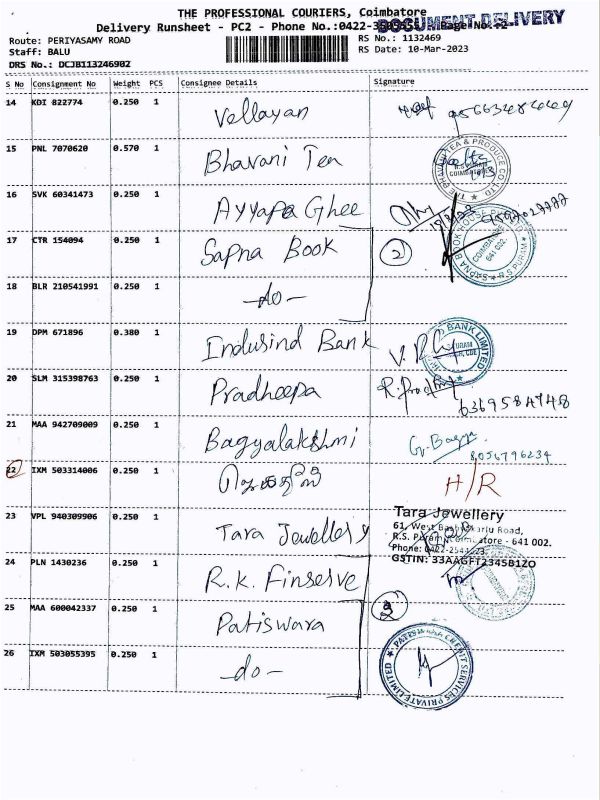 THE PROFESSIONAL COURIERS, Coimbatore
DOCUMENT DELIVERY
Delivery Runsheet - PC2 - Phone No.:0422-
Route: PERIYASAMY ROAD RS No.: 1132469
Staff: BALU RS Date: 10-Mar-2023
DRS No.: DCJB113246902
S No Consignment No Weight PCS Consignee Details Signature
14 KDI 822774 0.250 1 Vellayan
15 PNL 7070620 0.570 1 Bhavani Tea
16 SVK 60341473 0.250 1 Ayyapa Ghee
17 CTR 154094 0.250 1 Sapna Book 2
18 BLR 210541991 0.250 1 -do-
19 DPM 671896 0.380 1 Indusind Bank
BANK LIMITED
20 SLM 315398763 0.250 1 Pradheepa
21 MAA 942709009 0.250 1 Bagyalakshmi
8056796234
22 IXM 503314006 0.250 1 H/R
23 VPL 940309906 0.250 1 Tara Jewellery
Tara Jewellery
61, West
R.S. Puram, - 641 002.
Phone:
GSTIN: 33AAGFT2345B1ZO
24 PLN 1430236 0.250 1 R.K. Finserve
25 MAA 600042337 0.250 1 Patiswara
26 IXM 503055395 0.250 1 -do-
CREDIT SERVICES PRIVATE LIMITED